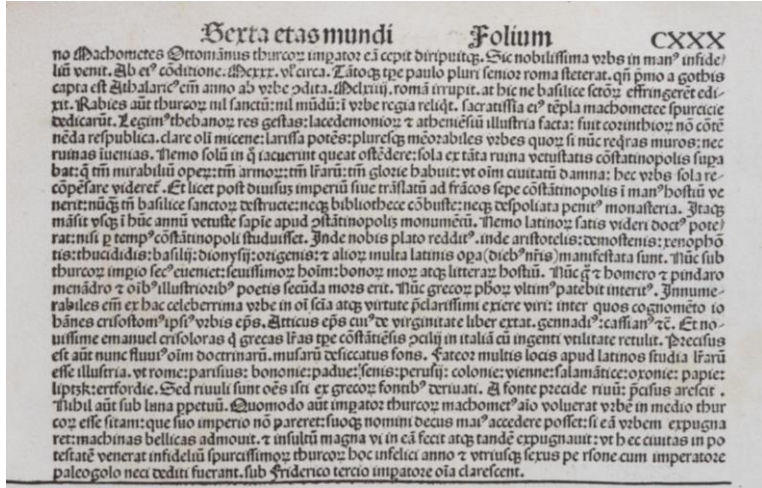 Sexta etas mundi Folium CXXX
no Machometes Ottomānus thurcoꝝ imꝑator eā cepit diripuitqꝫ. Sic nobilissima vrbs in manꝰ infide/
liū venit. Ab eiꝰ cōditione. Mcxxx. vl'circa. Tātoqꝫ tꝑe paulo pluri senior roma steterat. qñ pͥmo a gothis
capta est Athalaricꝰ eīm anno ab vrbe ꝯdita. Mclxiiij. romā irrupit. at hic ne basilice sctōꝝ effringerēt edi-
xit. Rabies aūt thurcoꝝ nil sanctū: nil mūdū: ī vrbe regia reliqt. sacratissīa eiꝰ tēpla machometee spurcicie
dedicarūt. Legimꝰ thebanoꝝ res gestas: lacedemonioꝝ ⁊ atheniēsiū illustria facta: fuit corinthioꝝ nō cōtē
nēda respublica. clare olī micene: larissa potēs: pluresqꝫ mēorabiles vrbes quoꝝ si nūc reqͥras muros: nec
ruinas īuenias. Nemo solū in q̄ iacuerint queat ostēdere: sola ex tāta ruina vetustatis cōstātinopolis suꝑa
bat: q̄ tm̄ mirabiliū opeꝝ: tm̄ armoꝝ: tm̄ lr̄arū: tm̄ glorie habuit: vt oīm ciuitatū damna: hec vrbs sola re-
cōpēsare videreť. Et licet post diuisuꝫ imperiū siue trāslatū ad frācos sepe cōstātinopolis ī manꝰ hostiū ve
nerit: nūqꝫ tn̄ basilice sanctoꝝ destructe: necꝫ bibliothece cōbuste: necꝫ despoliata penitꝰ monasteria. Itaqꝫ
māsit vsqꝫ ī hūc annū vetuste sapīe apud ꝯstātinopolīꝫ monumētū. Nemo latinoꝝ satis videri doctꝰ pote/
rat: nisi ꝑ tempꝰ cōstātinopoli studuisset. Inde nobis plato redditꝰ. inde aristotelis: demostenis: xenophō
tis: thucididis: basilij: dionysij: origenis: ⁊ alioꝝ multa latinis oꝑa (diebꝰ nr̄is) manifestata sunt. Nūc sub
thurcoꝝ imꝑio secꝰ eueniet: seuissimoꝝ hoīm: bonoꝝ moꝝ atqꝫ litteraꝝ hostiū. Nūc q̄ ⁊ homero ⁊ pindaro
menādro ⁊ oībꝰ illustrioribꝰ poetis secūda mors erit. Nūc grecoꝝ ph̄oꝝ vltimꝰ patebit interitꝰ. Innume-
rabiles em̄ ex hac celeberrima vrbe in oī scīa atqꝫ virtute p̄clarissimi exiere viri: inter quos cognomēto io
hānes crisostomꝰ ipsiꝰ vrbis ep̄s. Atticus ep̄s cuiꝰ de virginitate liber extat. gennadiꝰ: cassianꝰ ⁊c̄. Et no-
uissime emanuel crisoloras q̄ grecas lr̄as tꝑe cōstātiēsis ꝯcilij in italiā cū ingenti vtilitate retulit. Precisus
est aūt nunc fluuiꝰ oīm doctrinarū. musarū desiccatus fons. Fateor multis locis apud latinos studia lr̄arū
esse illustria. vt rome: parisius: bononie: padue: senis: perusij: colonie: vienne: salamātice: oxonie: papie:
liptzk: ertfordie. Sed riuuli sunt oēs isti ex grecoꝝ fontibꝰ deriuati. A fonte precide riuū: p̄cisus arescit.
Nihil aūt sub luna ꝑpetuū. Quomodo aūt imꝑator thurcoꝝ machometꝰ aīo voluerat vrbē in medio thur
coꝝ esse sitam: que suo imperio nō pareret: suoqꝫ nomini decus maiꝰ accedere posset: si eā vrbem expugna
ret: machinas bellicas admouit. ⁊ insultū magna vi in eā fecit atqꝫ tandē expugnauit: vt hec ciuitas in po
testatē venerat infideliū spurcissimoꝝ thurcoꝝ hoc infelici anno ⁊ vtriusqꝫ sexus ꝑsone cum imperatore
paleogolo neci dediti fuerant. sub Friderico tercio imꝑatore oīa clarescent.